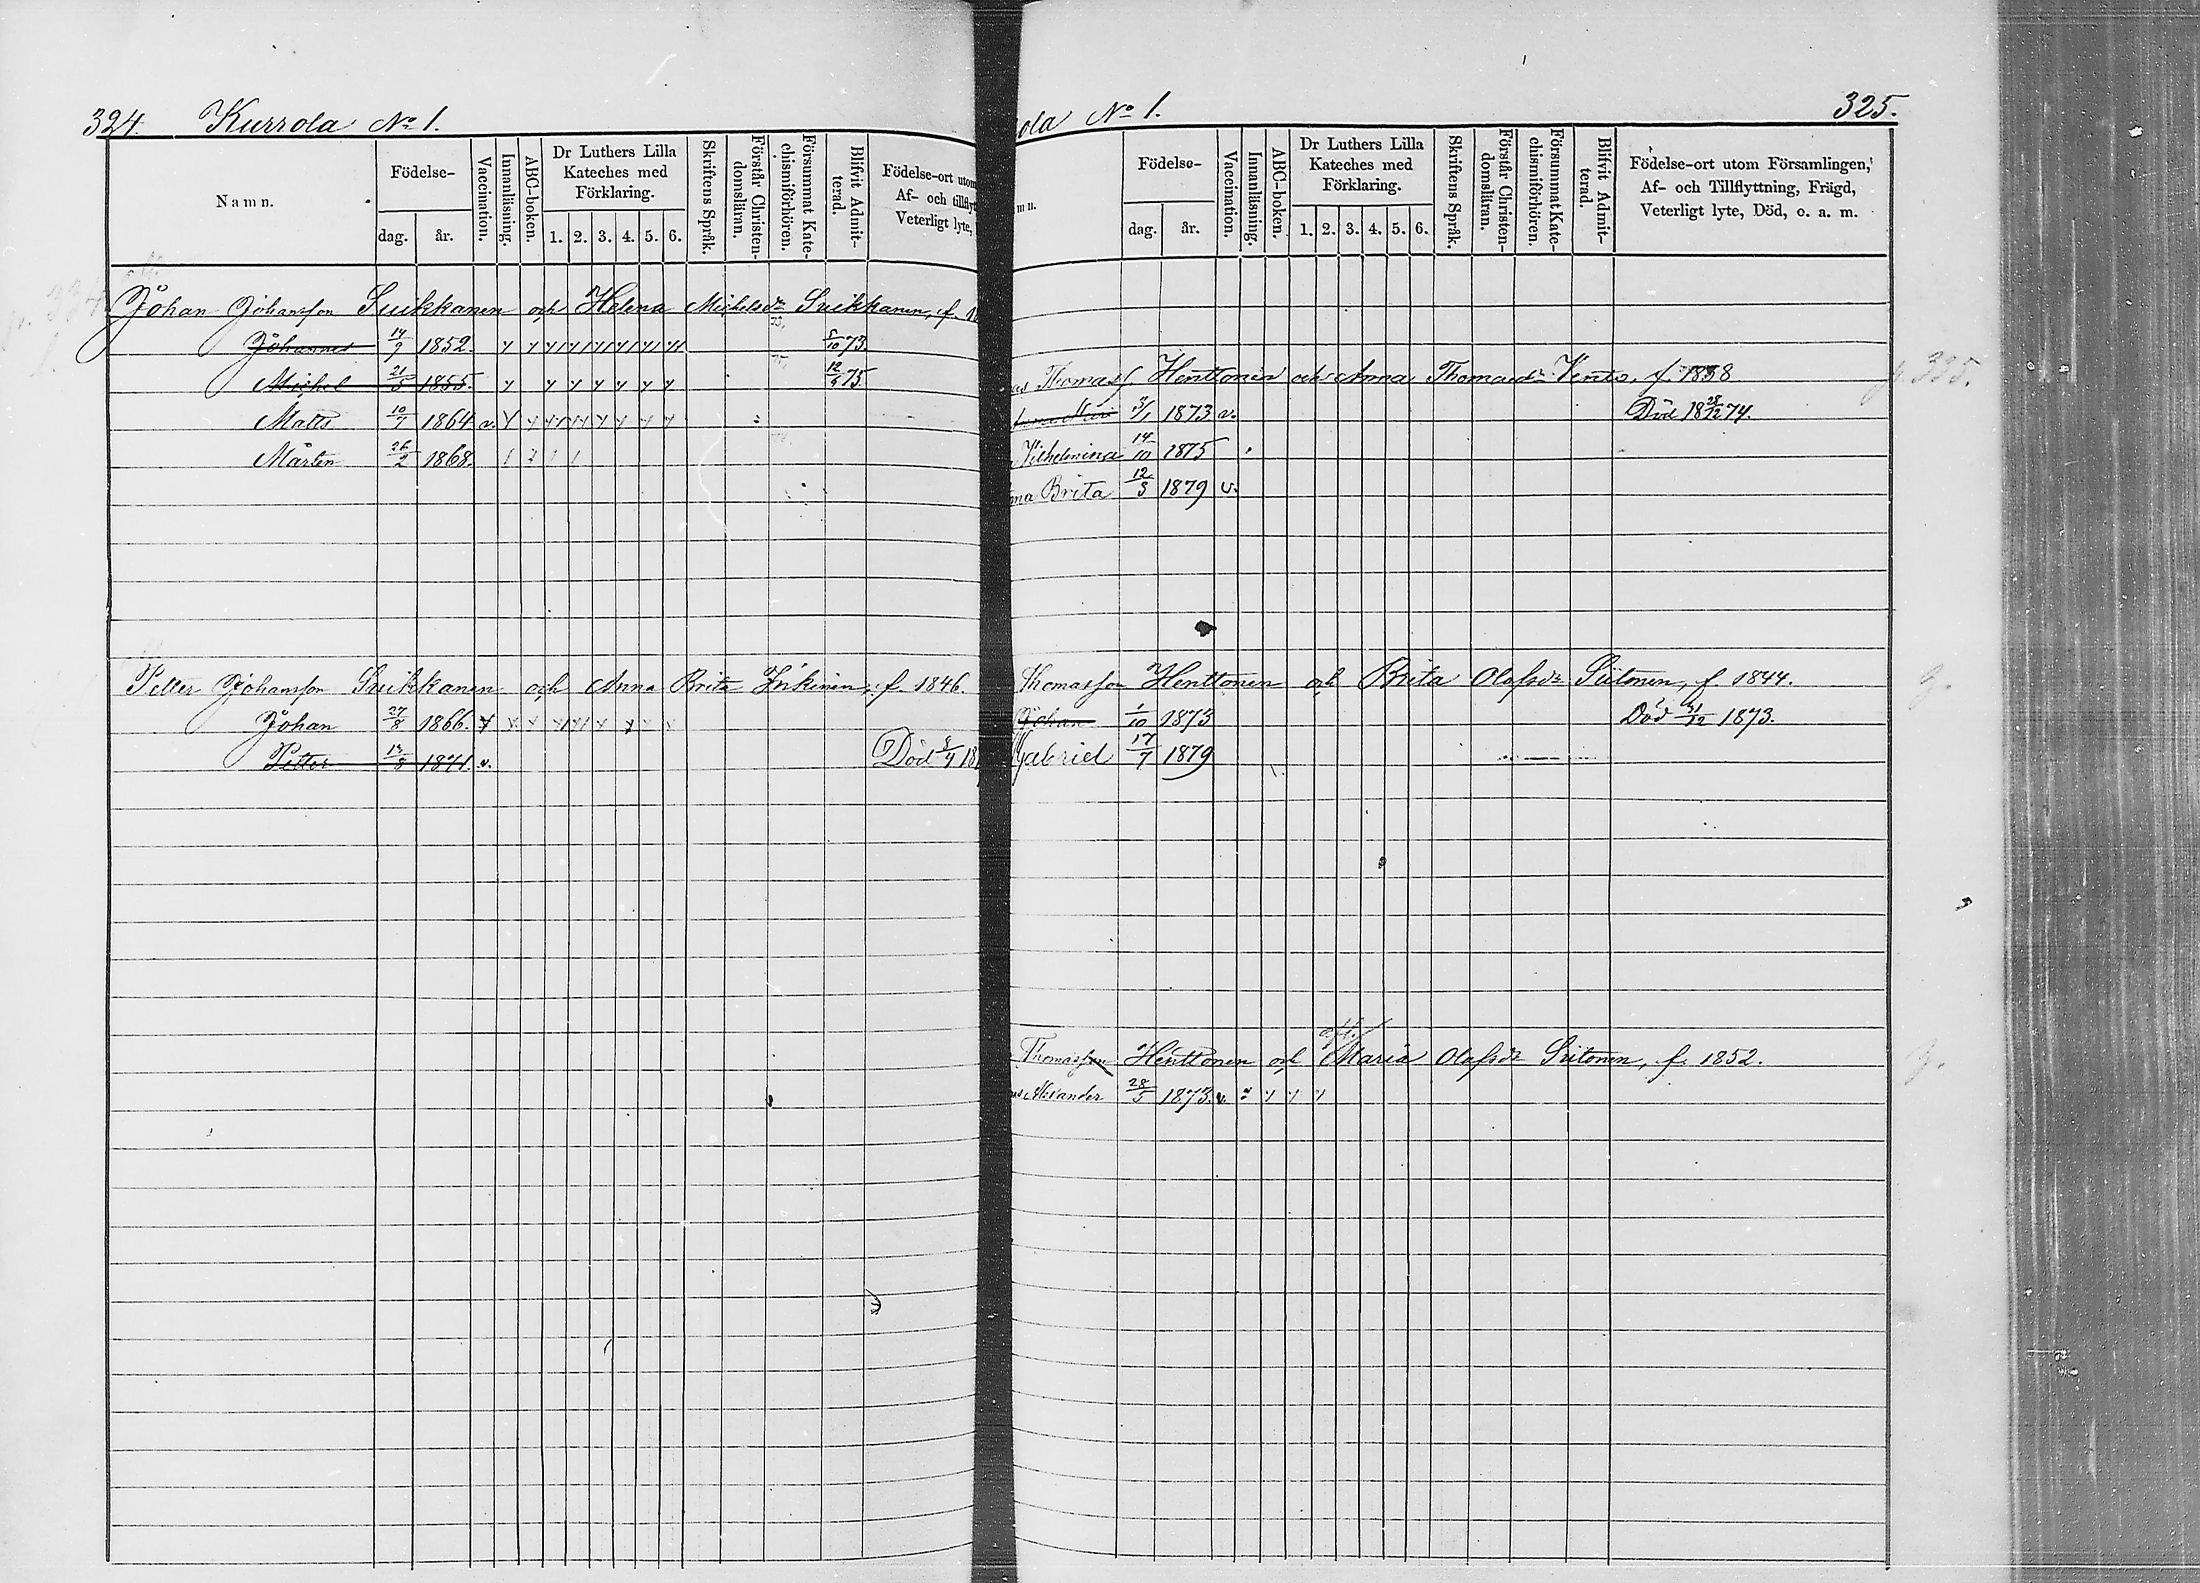 324. Kurrola No 1.
Namn.
Födelse-
dag. år.
Vaccination.
Innanläsning.
ABC-boken.
Dr Luthers Lilla
Kateches med
Förklaring.
1. 2. 3. 4. 5. 6.
Skriftens Språk.
Förstår Christen-
domsläran.
Försummat Kate-
chismiförhören.
Blifvit Admit-
terad.
Födelse-ort utom
Af- och tillflyt
Veterligt lyte,
Johan Johansson Suikkanen och Helena Michelsdr Suikkanen, f.
Johannes 14/9 1852. 5/10 73.
Michel 21/5 1855. 12/5 75
Matts 10/7 1864 v.
Mårten 26/2 1868.
Petter Johansson Suikkanen och Anna Brita Inkinen, f. 1846.
Johan 27/8 1866.
Petter 13/8 1871. v. Död 8/4 18
ola No 1. 325.
mn.
Födelse-
dag. år.
Vaccination.
Innanläsning.
ABC-boken.
Dr Luthers Lilla
Kateches med
Förklaring.
1. 2. 3. 4. 5. 6.
Skriftens Språk.
Förstår Christen-
domsläran.
Försummat Kate-
chismiförhören.
Blifvit Admit-
terad.
Födelse-ort utom Församlingen,
Af- och Tillflyttning, Frägd,
Veterligt lyte, Död, o. a. m.
as Thomass. Henttonen och Anna Thomasdr Vento, f. 1838 p. 335.
3/1 1873 v. Död 18 28/12 74.
Vilhelmina 14/10 1875
na Brita 12/3 1879 v.
Thomasson Henttonen och Brita Olofsdr Siitonen, f. 1844.
Johan 1/10 1873 Död 31/12 1873.
Gabriel 17/7 1879
Thomasson Henttonen och Maria Olofsdr Siitonen, f. 1852.
as Alexander 28/5 1873. v.